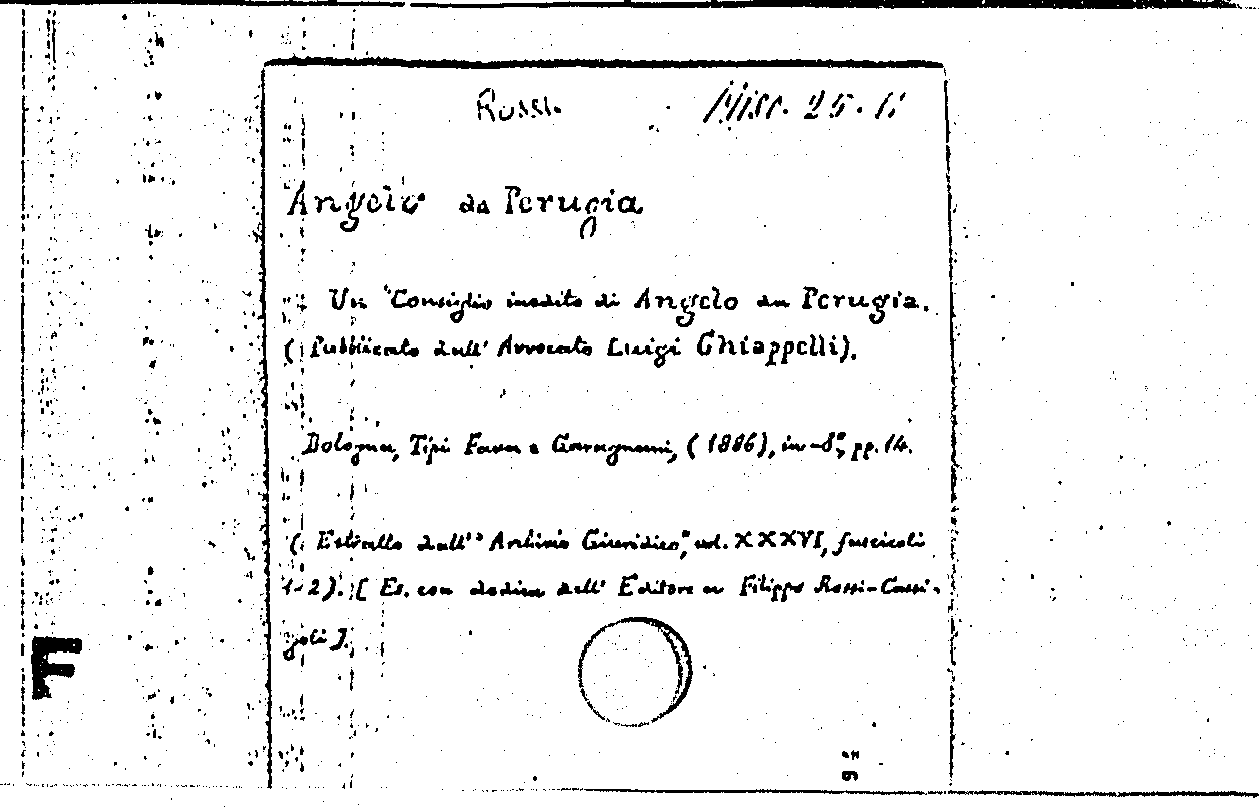 Rossi. Misc. 25. 11
Angelo da Perugia
Un Consiglio inedito di Angelo da Perugia.
(Pubblicato dall' Avvocato Luigi Chiappelli).
Bologna, Tipi Fava e Garagnani, (1886), in-8°, pp. 14.
(Estratto dall' "Archivio Giuridico", vol. XXXVI, fascicoli
1-2). [Es. con dedica dell' Editore a Filippo Rossi-Cassi-
goli].
F